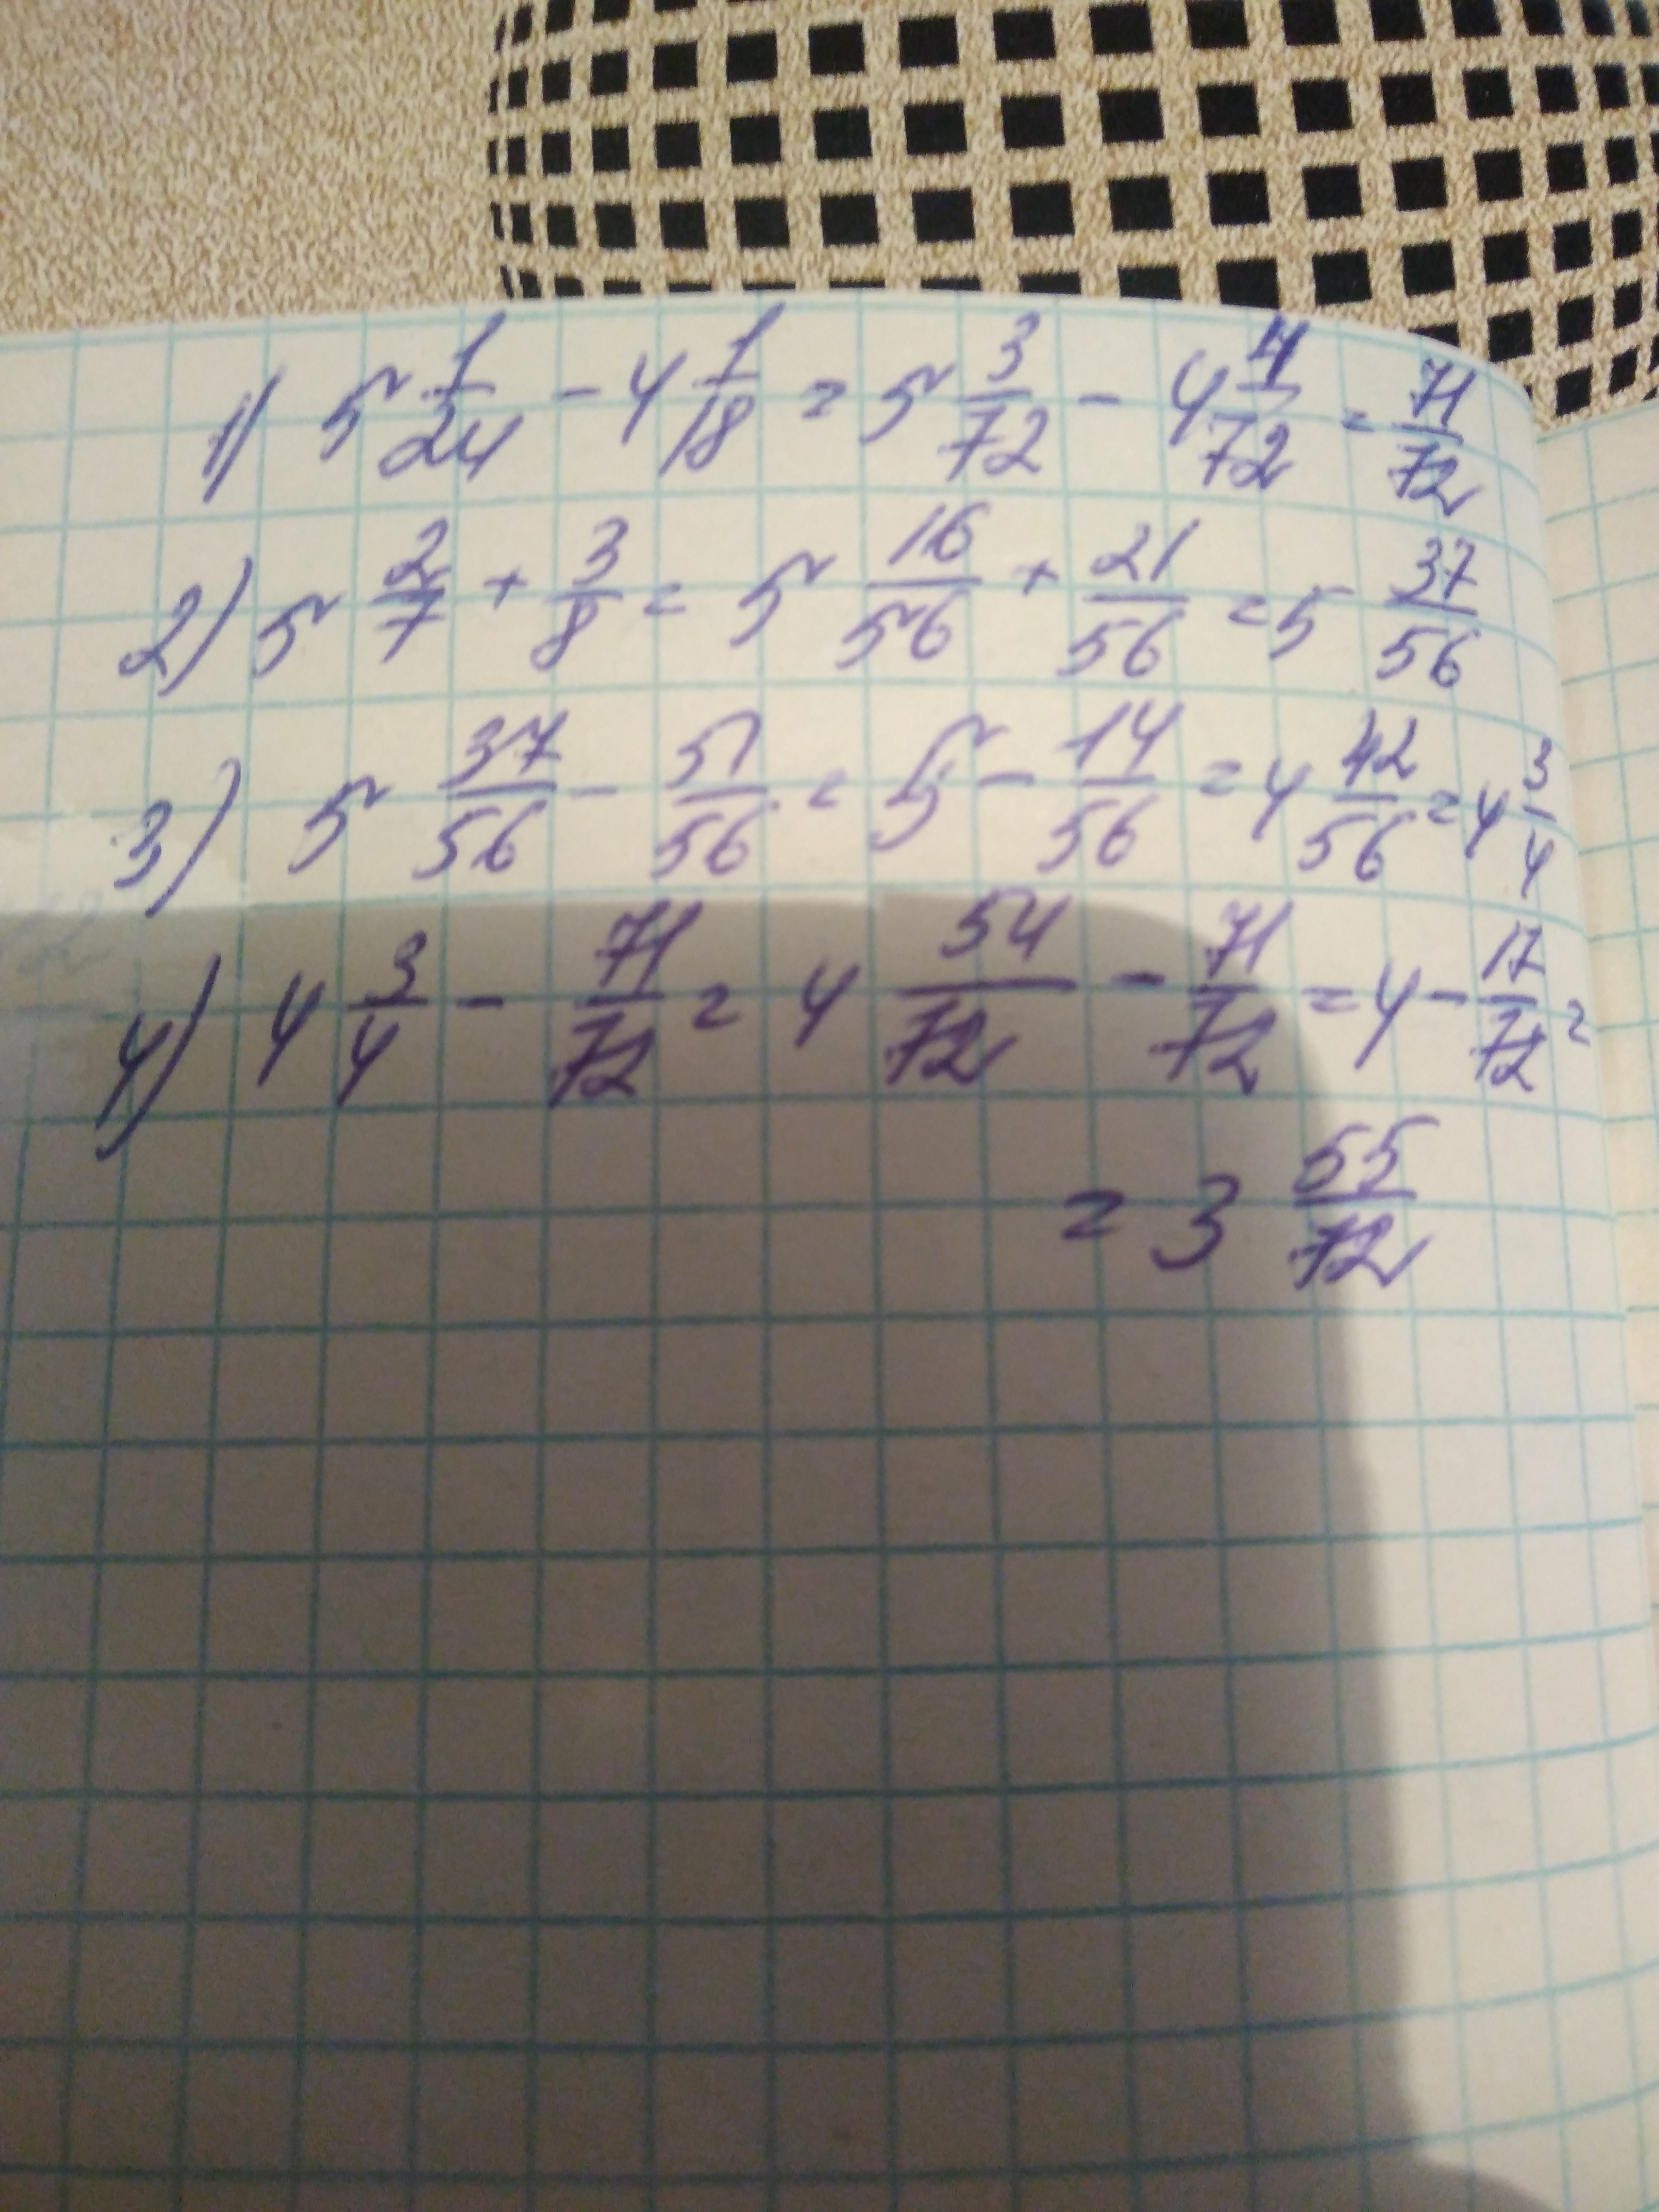 1) 5 1/24 - 4 1/18 = 5 3/72 - 4 4/72 = 71/72
2) 5 2/7 + 3/8 = 5 16/56 + 21/56 = 5 37/56
3) 5 37/56 - 51/56 = 5 - 14/56 = 4 42/56 = 4 3/4
4) 4 3/4 - 71/72 = 4 54/72 - 71/72 = 4 - 17/72 =
= 3 55/72